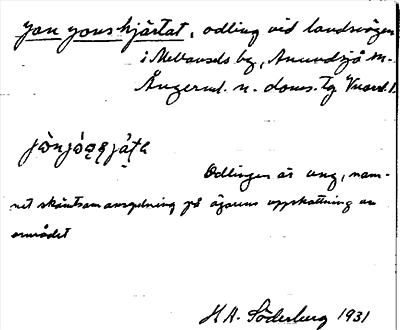 Jon Jons hjärtat, odling vid landsvägen
i Mellansels by, Anundsjö sn.
Ångerml. n. doms. Tg
Odlingen är ung, nam-
net skämtsam anspelning på ägarens uppskattning av
området
H A. Söderberg 1931